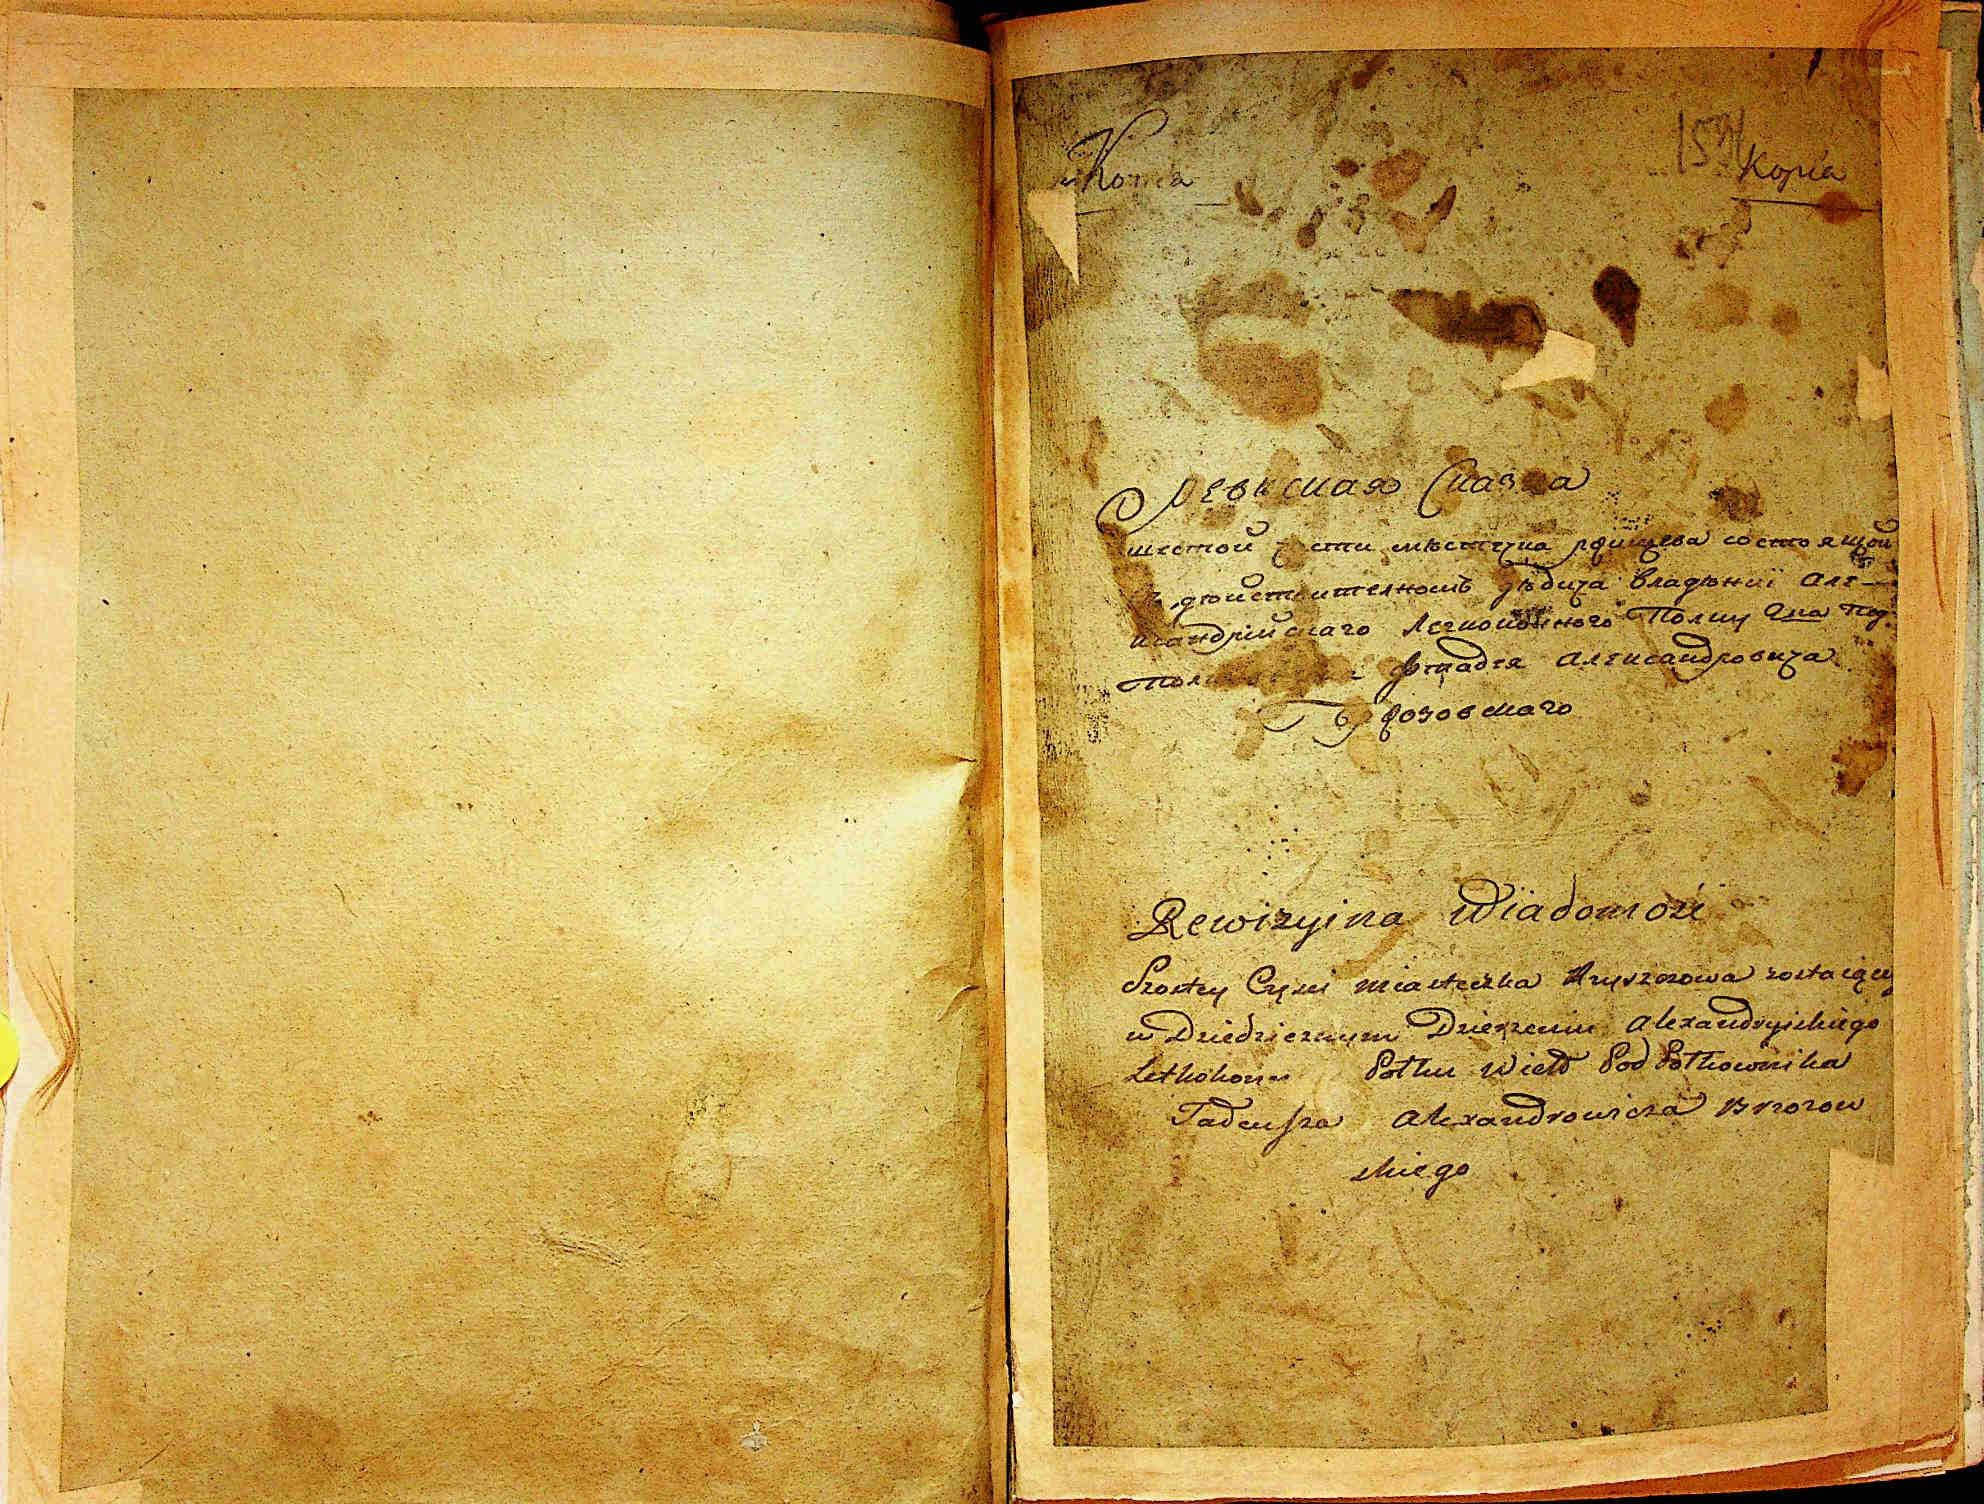 Копиа
153
Kopia
Ревиская Сказка
шестой части мѣстечка состоящой
в дѣйствителномъ дѣдича владѣнии Але-
ксандрийскаго Легкоконного Полку Гна Под
Полковника Фтадея Александровича
Бржозовскаго
Rewizyina Wiadomość
Szostey Częsci miasteczka zostaiącey
w Dziedzicznym Dzierzeniu Alexandryiskiego
Letkokon Połku Wiel Pod Połkownika
Tadeusza Alexandrowicza Brzozow
skiego